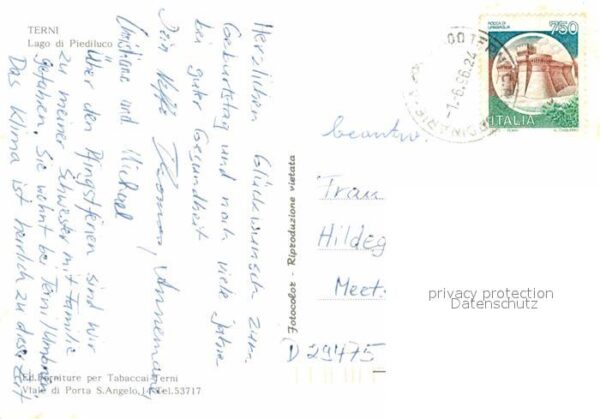 TERNI
Lago di Piediluco
Herzlichen Glückwunsch zum
Geburtstag und noch viele Jahre
bei guter Gesundheit
Dein Neffe Thomas, Annemarie,
Christiane und Michael
Über den Pfingstferien sind wir
zu meiner Schwester mit Familie
gefahren. Sie wohnt bei Terni/Umbrien.
Das Klima ist herrlich zu dieser Zeit
Ed. Forniture per Tabaccai Terni
Viale di Porta S.Angelo, 14 Tel.53717
Fotocolor - Riproduzione vietata
ROCCA DI
URBISAGLIA
750
ITALIA
-1.-6.96.24
beantw.
Frau
Hildeg
Meet
D 29475
privacy protection
Datenschutz